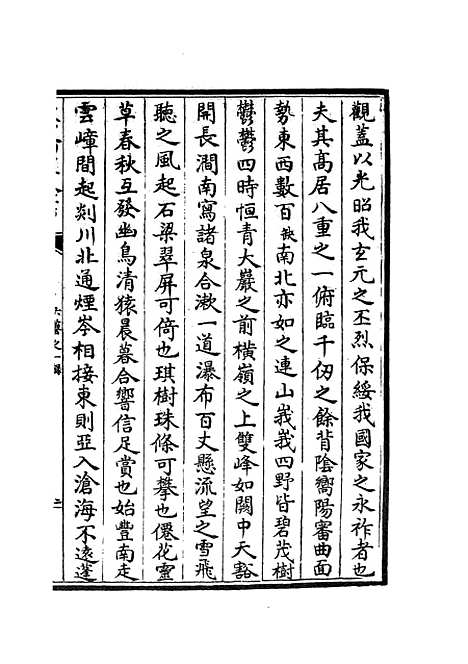 觀蓋以光昭我玄元之丕烈保綏我國家之永祚者也
夫其高居八重之一俯臨千仞之餘背陰嚮陽審曲面
勢東西數百缺南北亦如之連山峩峩四野皆碧茂樹
鬱鬱四時恒青大巖之前橫嶺之上雙峰如闕中天豁
開長澗南寫諸泉合漱一道瀑布百丈懸流望之雪飛
聽之風起石梁翠屏可倚也琪樹珠條可攀也僊花靈
草春秋互發幽鳥清猿晨暮合響信足賞也始豐南走
雲嶂間起剡川北通煙岑相接東則亞入滄海不遠蓬